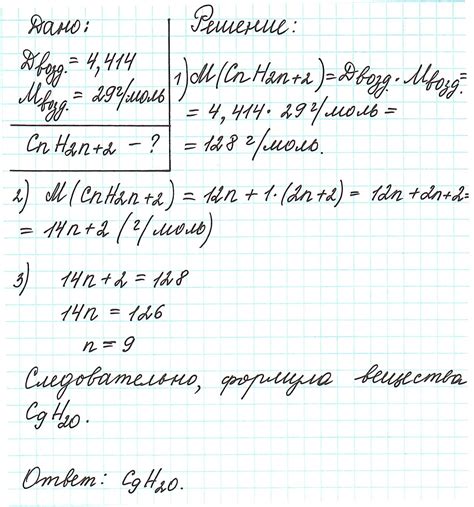 Дано:
Dвозд. = 4,414
Mвозд. = 29 г/моль
CnH2n+2 - ?
Решение:
1) M(CnH2n+2) = Dвозд. · Mвозд. =
= 4,414 · 29 г/моль =
= 128 г/моль.
2) M(CnH2n+2) = 12n + 1·(2n+2) = 12n+2n+2=
= 14n+2 (г/моль)
3) 14n + 2 = 128
14n = 126
n = 9
Следовательно, формула вещества
C9H20.
Ответ: C9H20.